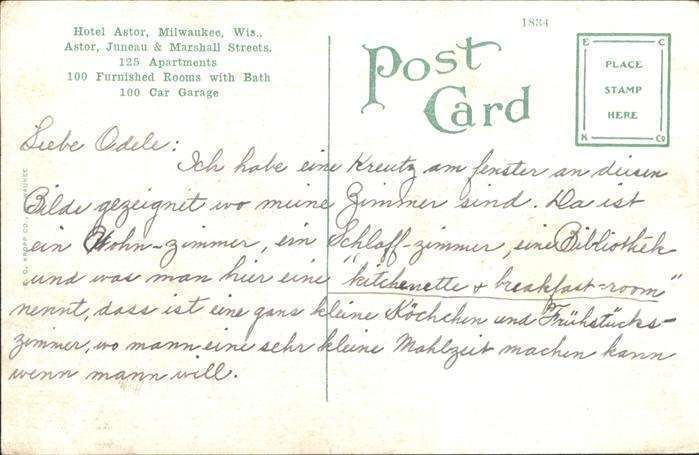 Hotel Astor, Milwaukee, Wis.,
Astor, Juneau & Marshall Streets.
125 Apartments
100 Furnished Rooms with Bath
100 Car Garage
1834
Post
Card
E C
PLACE
STAMP
HERE
K Co
E. C. KROPP CO., MILWAUKEE
Liebe Odele:
Ich habe eine Kreutz am fenster an diesen
Bilde gezeignet wo meine Zimmer sind. Da ist
ein Wohn-zimmer, ein Schlaff-zimmer, eine Bibliothek
und was man hier eine "kitchenette & breakfast-room"
nennt, dass ist eine gans kleine Köchchen und Frühstücks-
zimmer, wo mann eine sehr kleine Mahlzeit machen kann
wenn mann will.